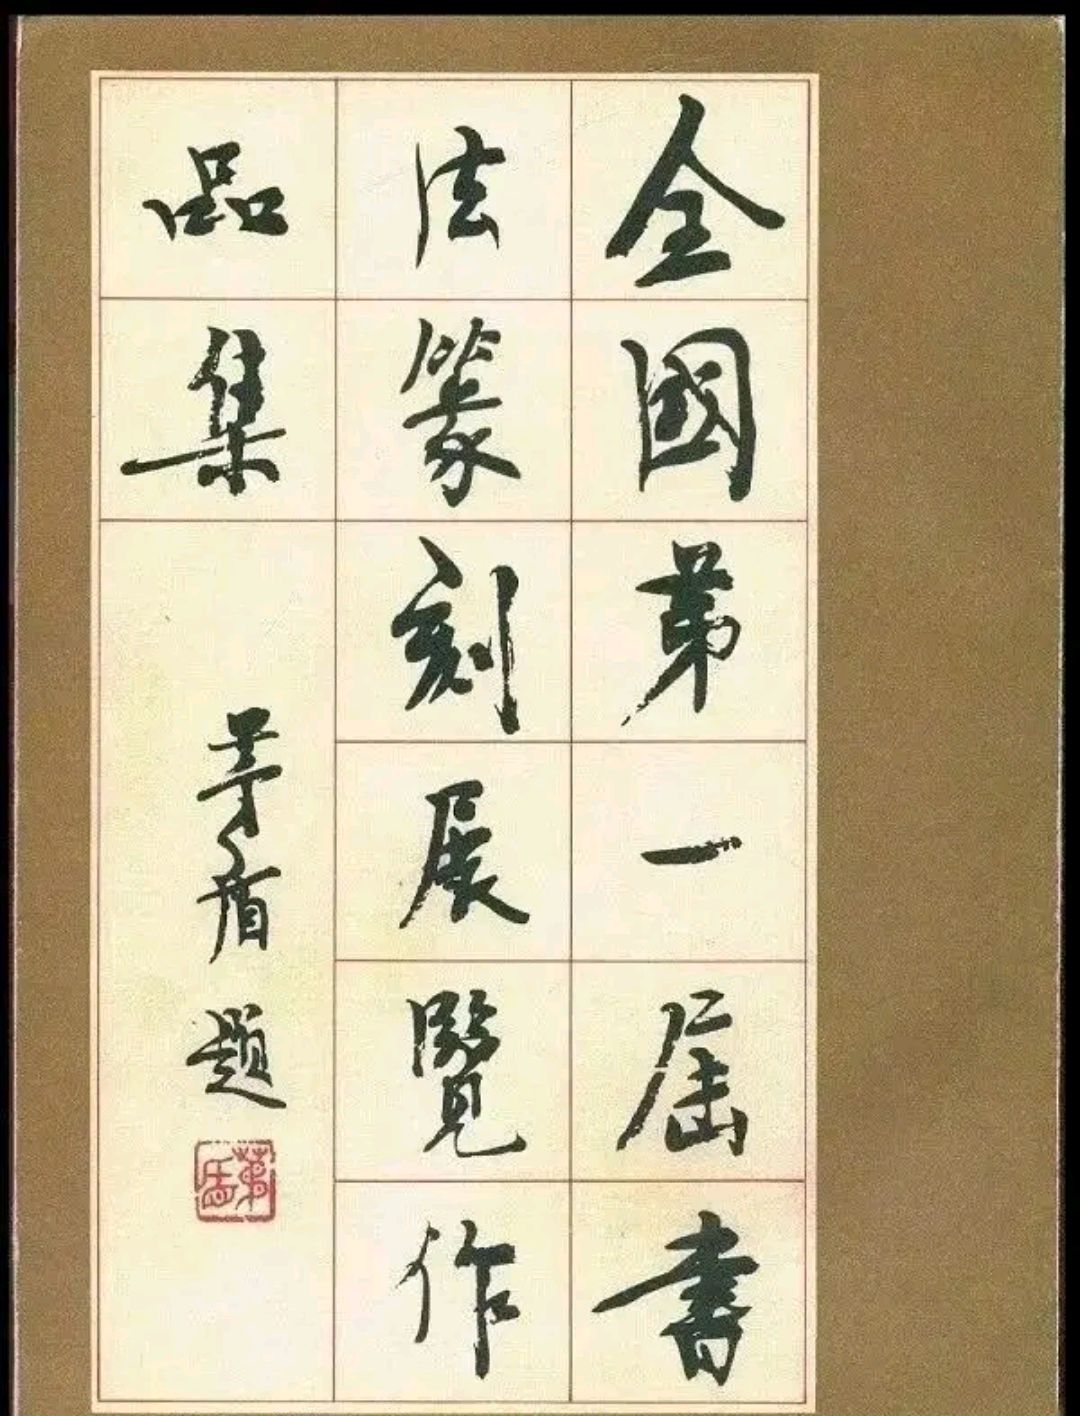 全國第一屆書
法篆刻展覽作
品集
茅盾题
茅盾